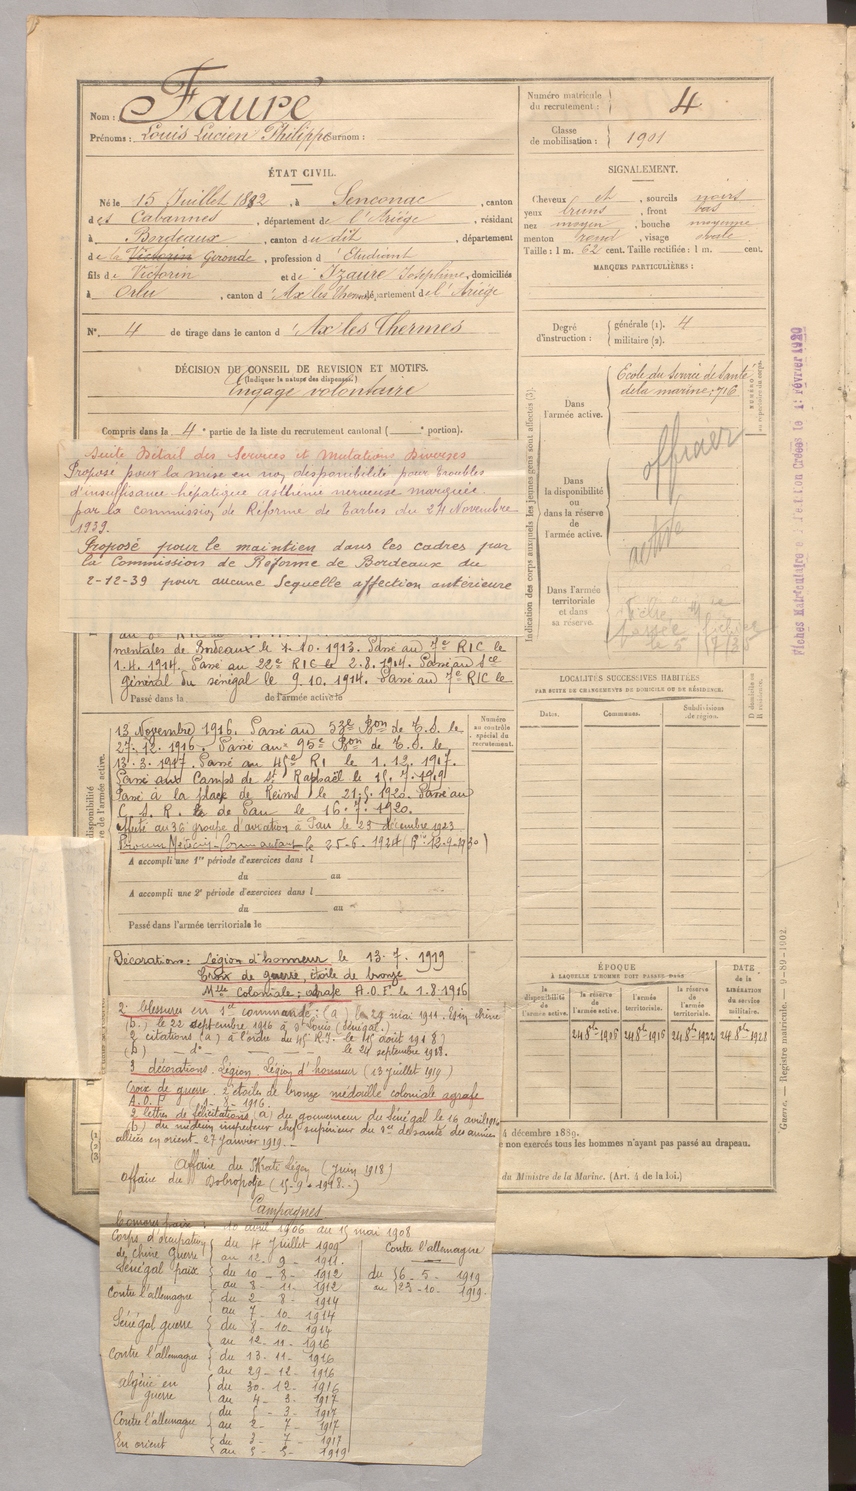 Nom : Fauré
Prénoms : Louis Lucien Philippe surnom :
ÉTAT CIVIL.
Né le 15 Juillet 1882, à Senconac, canton
des Cabannes, département de l'Ariège, résidant
à Bordeaux, canton du dit, département
de la Victorin Gironde, profession d'Etudiant
fils de Victorin et de Izaure Joséphine, domiciliés
à Orlu, canton d'Ax les Thermes, département de l'Ariège
N° 4 de tirage dans le canton d'Ax les Thermes
DÉCISION DU CONSEIL DE REVISION ET MOTIFS.
(Indiquer la nature des dispenses.)
Engagé volontaire
Compris dans la 4e partie de la liste du recrutement cantonal (e portion).
Suite Détail des Services et Mutations Diverses
Proposé pour la mise en non disponibilité pour troubles
d'insuffisance hépatique asthénie nerveuse marquée
par la commission de Réforme de Tarbes du 24 Novembre
1939.
Proposé pour le maintien dans les cadres par
la Commission de Réforme de Bordeaux du
2-12-39 pour aucune séquelle affection antérieure
mentales de Bordeaux le 1.10.1913. Passé au 7e RIC le
1.4.1914. Passé au 22e RIC le 2.8.1914. Passé au Sce
général du Sénégal le 9.10.1914. Passé au 7e RIC le
Passé dans la de l'armée active le
13 Novembre 1916. Passé au 53e Bon de T.S. le
27.12.1916. Passé au 95e Bon de T.S. le
13.3.1917. Passé au 45e RI le 1.12.1917.
Passé aux Camps de St Raphaël le 15.7.1919
Passé à la place de Reims le 21.5.1920. Passé au
C.S.R. de Pau le 16.7.1920.
Affecté au 36e groupe d'aviation à Pau le 25 décembre 1923
Promu Médecin-Commandant le 25.6.1924
A accompli une 1re période d'exercices dans l
du au
A accompli une 2e période d'exercices dans l
du au
Passé dans l'armée territoriale le
Décorations : Légion d'honneur le 13.7.1919
Croix de guerre, étoile de bronze
Mlle Coloniale ; agrafe A.O.F. le 1.8.1916
2 blessures en Sce commandé : (a) le 29 mai 1911. Chine
(b.) le 22 septembre 1916 à St Louis (Sénégal.)
2 citations (a) à l'ordre du 45e R.I. le 15 août 1918)
(b) — d° — le 24 septembre 1918.
3 décorations. Légion. Légion d'honneur (13 juillet 1919)
Croix de guerre. 2 étoiles de bronze médaille coloniale agrafe
A.O.F. (1-8-1916.
2 lettres de félicitations (a) du gouverneur du Sénégal le 16 avril 1916
(b) du médecin inspecteur chef supérieur du Sce de santé des armées
alliées en orient. 27 janvier 1919.
Affaire du Skra di Légen (juin 1918)
Affaire du Dobropolje (15-9-1918.)
Campagnes
Comores paix : 10 avril 1906 au 15 mai 1908
Corps d'occupation { du 4 Juillet 1909
de Chine Guerre { au 12 - 9 - 1911.
Sénégal paix { du 10 - 8 - 1912
au 8 - 11 - 1912
Contre l'allemagne { du 2 - 8 - 1914
au 7 - 10 - 1914
Sénégal guerre { du 8 - 10 - 1914
au 12 - 11 - 1916
Contre l'allemagne { du 13 - 11 - 1916
au 29 - 12 - 1916
algérie en { du 30 - 12 - 1916
guerre au 4 - 3 - 1917
Contre l'allemagne { du 5 - 3 - 1917
au 2 - 7 - 1917
En orient { du 3 - 7 - 1917
au 5 - 5 - 1919
Contre l'allemagne
du 6 - 5 - 1919
au 23 - 10 - 1919
Numéro matricule du recrutement : 4
Classe de mobilisation : 1901
SIGNALEMENT.
Cheveux et, sourcils noirs
yeux bruns, front bas
nez moyen, bouche moyenne
menton rond, visage ovale
Taille : 1 m. 62 cent. Taille rectifiée : 1 m. cent.
MARQUES PARTICULIÈRES :
Degré d'instruction : générale (1). 4
militaire (2).
Indication des corps auxquels les jeunes gens sont affectés (3).
NUMÉRO
au répertoire du corps.
Dans l'armée active.
Ecole du Service de Santé
de la marine : 716
Dans la disponibilité ou dans la réserve de l'armée active.
officier
active
Dans l'armée territoriale et dans sa réserve.
Fiches Matriculaire Créées le 1er Février 1920
LOCALITÉS SUCCESSIVES HABITÉES
PAR SUITE DE CHANGEMENTS DE DOMICILE OU DE RÉSIDENCE.
Dates. Communes. Subdivisions de région. D domicile ou R résidence.
Numéro au contrôle spécial du recrutement.
ÉPOQUE
À LAQUELLE L'HOMME DOIT PASSER DANS
DATE de la LIBÉRATION du service militaire.
la disponibilité de l'armée active. la réserve de l'armée active. l'armée territoriale. la réserve de l'armée territoriale.
24 8bre 1905 24 8bre 1915 24 8bre 1922 24 8bre 1928
4 décembre 1889.
e non exercés tous les hommes n'ayant pas passé au drapeau.
du Ministre de la Marine. (Art. 4 de la loi.)
Guerre. — Registre matricule. — 9-89-1902.